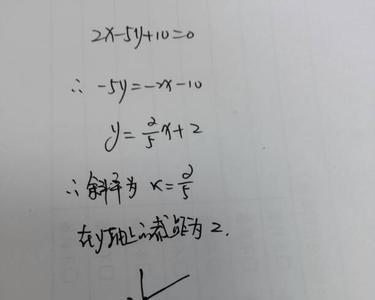 2x-5y+10=0
∴ -5y=-2x-10
y=2/5x+2
∴斜率为 k=2/5
在y轴上的截距为2.